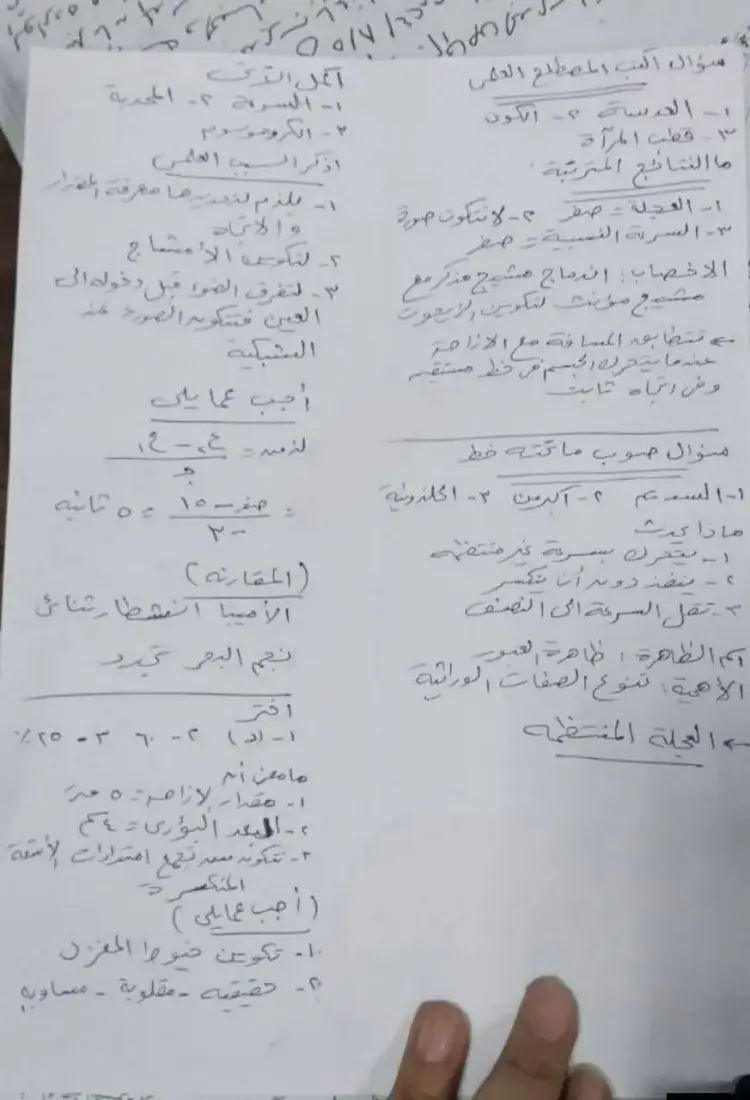 سؤال اكتب المصطلح العلمى
١- العدسة ٢- الكون
٣- قطب المرآة
ما النتائج المترتبة
١- العجلة = صفر ٢- لا تتكون صورة
٣- السرعة النسبية = صفر
الاخصاب: اندماج مشيج مذكر مع
مشيج مؤنث لتكوين الزيجوت
← تتطابق المسافة مع الازاحة
عندما يتحرك الجسم فى خط مستقيم
وفى اتجاه ثابت
سؤال صوب ما تحته خط
١- السديم ٢- أكبر من ٣- الحلزونية
ماذا يحدث
١- يتحرك بسرعة غير منتظمه
٢- ينفذ دون أن ينكسر
٣- تقل السرعة الى النصف
اسم الظاهرة: ظاهرة العبور
الأهمية: تنوع الصفات الوراثية
← العجلة المنتظمه
أكمل
١- السرعة ٢- المحدبة
٣- الكروموسوم
اذكر السبب العلمى
١- يلزم لتحديدها معرفة المقدار
والاتجاه
٢- لتكوين الأمشاج
٣- لتفرق الضوء قبل دخوله الى
العين فتتكون الصورة عند
الشبكية
أجب عما يلى
الزمن = ع٢ - ع١ / جـ
= صفر - ١٥ / -٣ = ٥ ثانيه
(المقارنه)
الأميبا انشطار ثنائى
نجم البحر تجدد
اختر
١- (د) ٢- ٦٠ ٣- ٢٥٪
ما معنى أن
١- مقدار الازاحة = ٥ متر
٢- البعد البؤرى = ٤سم
٣- تتكون من تجمع امتدادات الأشعة
المنكسرة
(أجب عما يلى)
١- تكوين خيوط المغزل
٢- حقيقيه - مقلوبة - مساويه